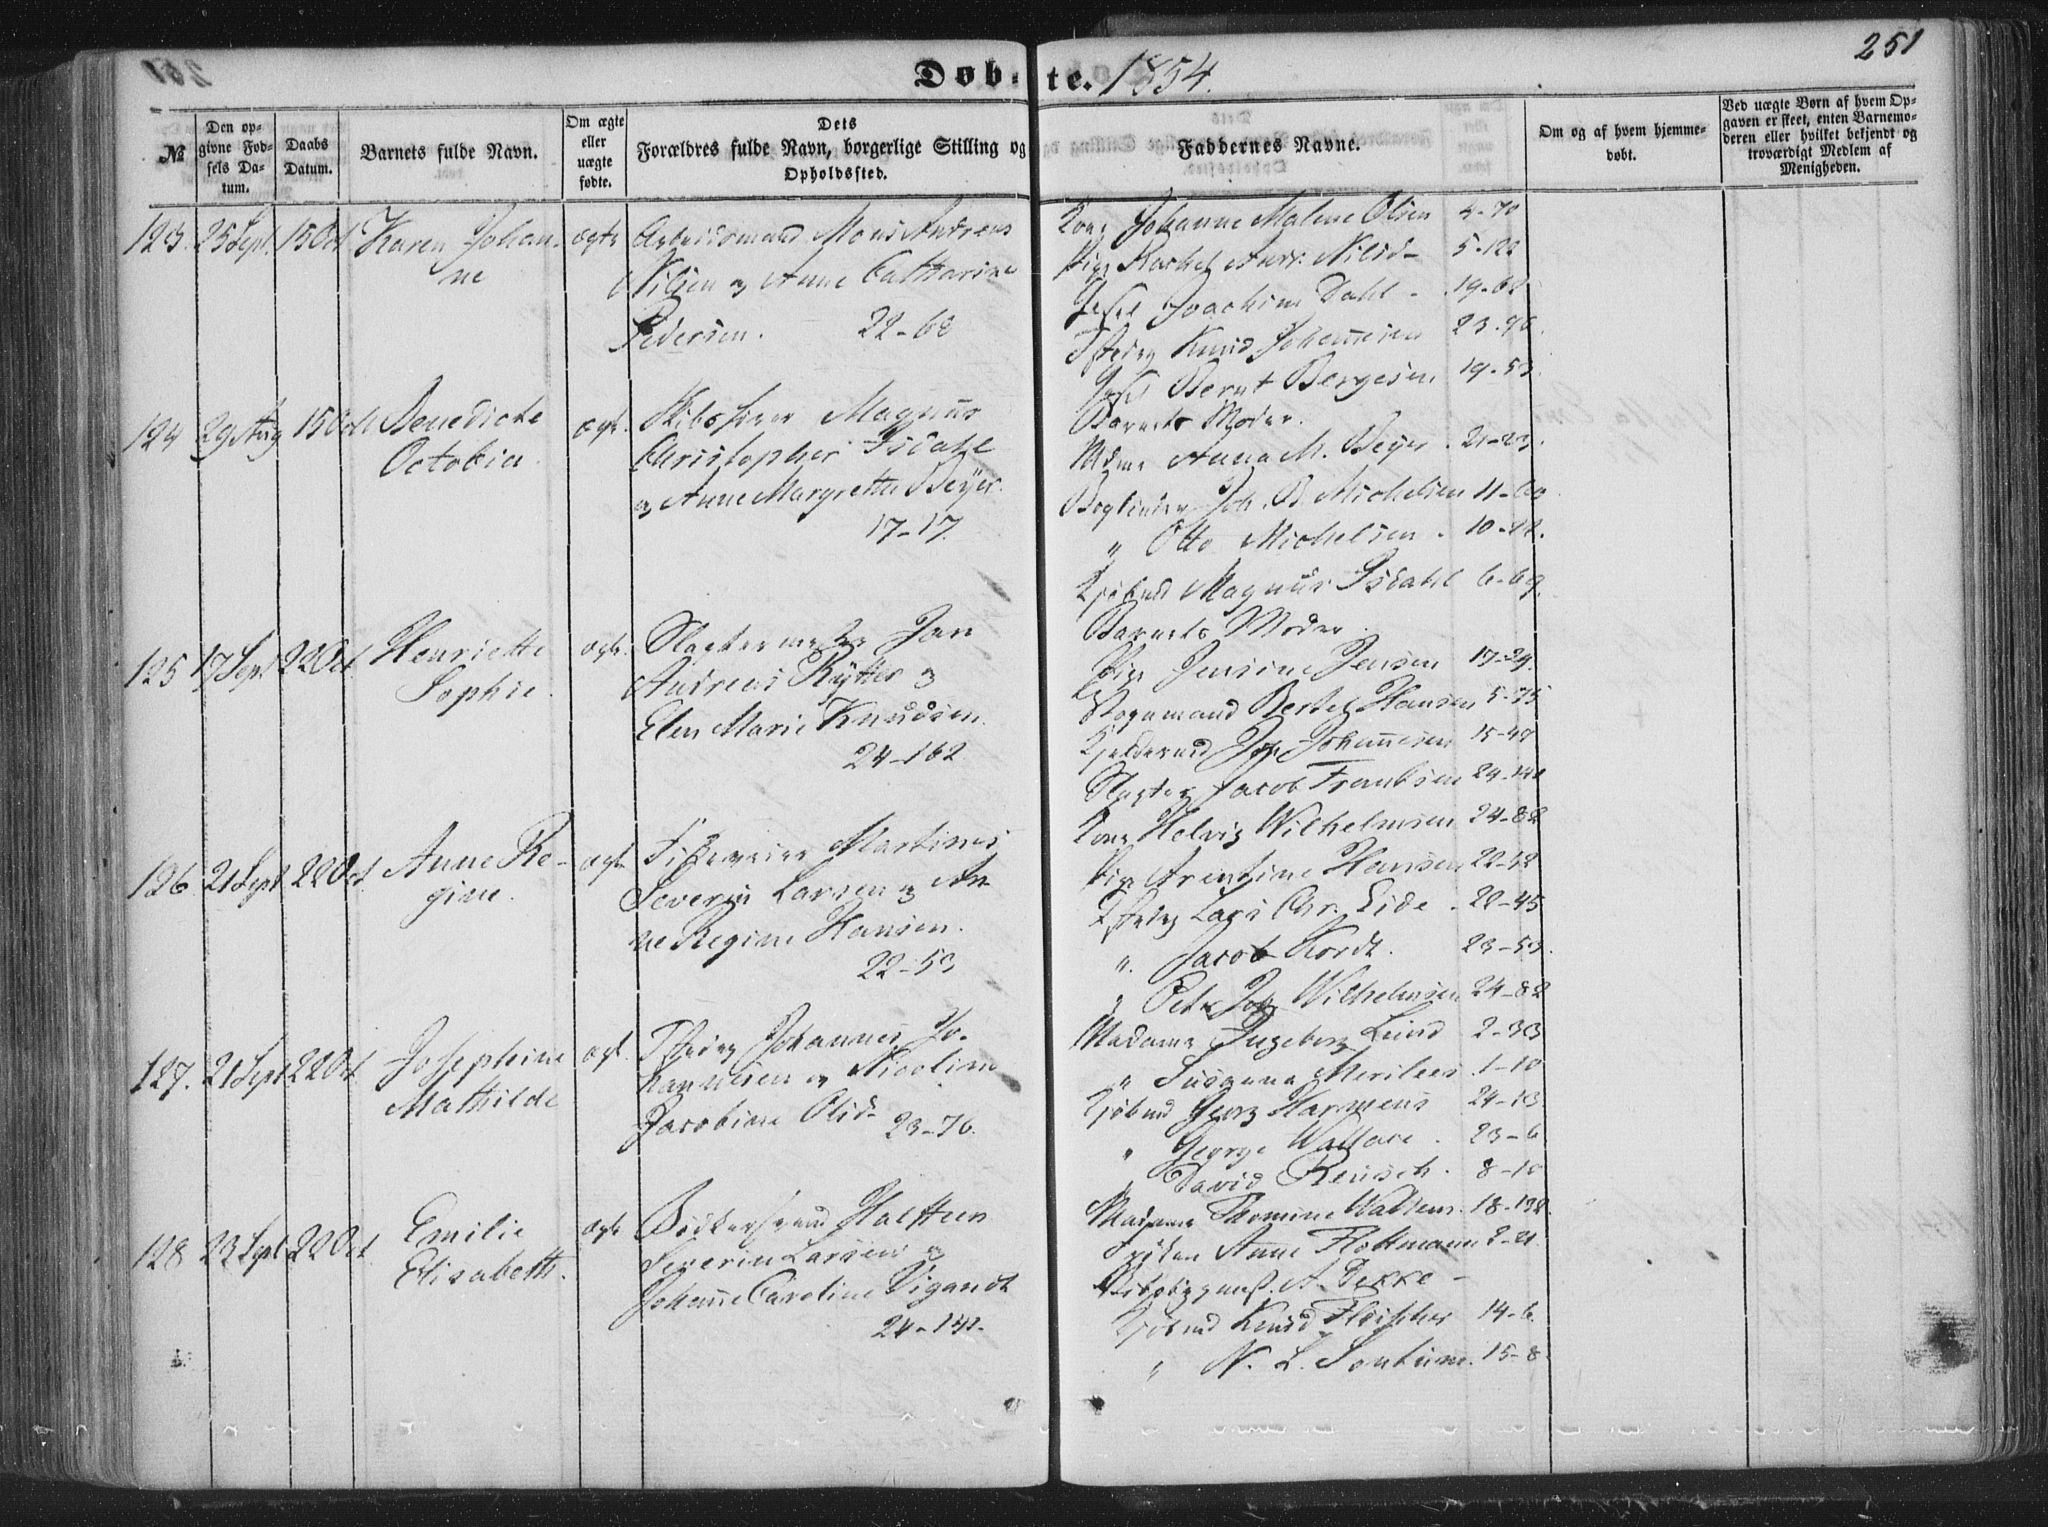 251
Døbte. 1854.
№
Den opgivne Fødsels Datum.
Daabs Datum.
Barnets fulde Navn.
Om ægte eller uægte fødte.
Dets Forældres fulde Navn, borgerlige Stilling og Opholdssted.
Faddernes Navne.
Om og af hvem hjemmedøbt.
Ved uægte Børn af hvem Opgaven er skeet, enten Barnemoderen eller hvilket bekjendt og troværdigt Medlem af Menigheden.
123. 25 Sept. 15 Oct. Karen Johan-
ne
ægte Arbeidsmand Mons Andreas
Nilsen og Anne Catharine
Pedersen. 22-68
Kone Johanne Malene Olsen 4-70
Pige Rachel Nilsd- 5-122
Joachim Dahl - 19-62
Knud Johannesen 23-76.
Bernt Bergesen 19-53
Barnets Moder.
124 29 Aug 15 Oct Benedicte
Octobia
ægt. Skibsfører Magnus
Christopher Isdahl
og Anne Margrethe Beyer.
17-17.
Mdme Anna M. Beyer. 21-23.
Bogbinder Joh. B. Michelsen 11-60
" Otto Michelsen. 10-12.
Kjøbmd Magnus Isdahl 6-69.
Barnets Moder.
125 17 Sept 22 Oct. Henriette
Sophie.
ægte. Slagtermester Jan
Andreas Rytter og
Elen Marie Knudsen.
24-162
Pige Jensine Jensen 17-29.
Vognmand Bertel Hansen 5-75
Johannesen 15-47
Slagter Jacob Frantsen 24-141
126. 21 Sept 22 Oct Anne Re-
gine.
ægt. Martinus
Severin Larsen og An-
ne Regine Hansen.
22-53
Kone Helvig Wilhelmsen 24-82
Pige Arentine Hansen 22-52
Lars Chr. Eide. 22-45
". Jacob Kordt. 23-53.
" Peter Joh. Wilhelmsen 24-82
127. 21 Sept 22 Oct Josephine
Mathilde
ægt. Johannes Jo-
hannesen og Nicoline
Jacobine Olsd- 23-76.
Madame Ingeborg Lund 2-33
" Susanna Merilees. 1-10
Kjøbmd Georg Harmens 24-13
" George Wallace. 23-6
" David Reusch. 8-10
128 23 Sept 22 Oct. Emilie
Elisabeth.
ægte Bødkersvend Halsteen
Severin Larsen og
Johanne Caroline Vigandt
24-141.
Madame Thomine Waltens. 18-132.
Frøken Anne Flottmann 2-21.
Skibsbyggmst. A. Dekke -
Kjøbmd Knud Fleischer 14-6.
" N. L. Sontum. 15-8.